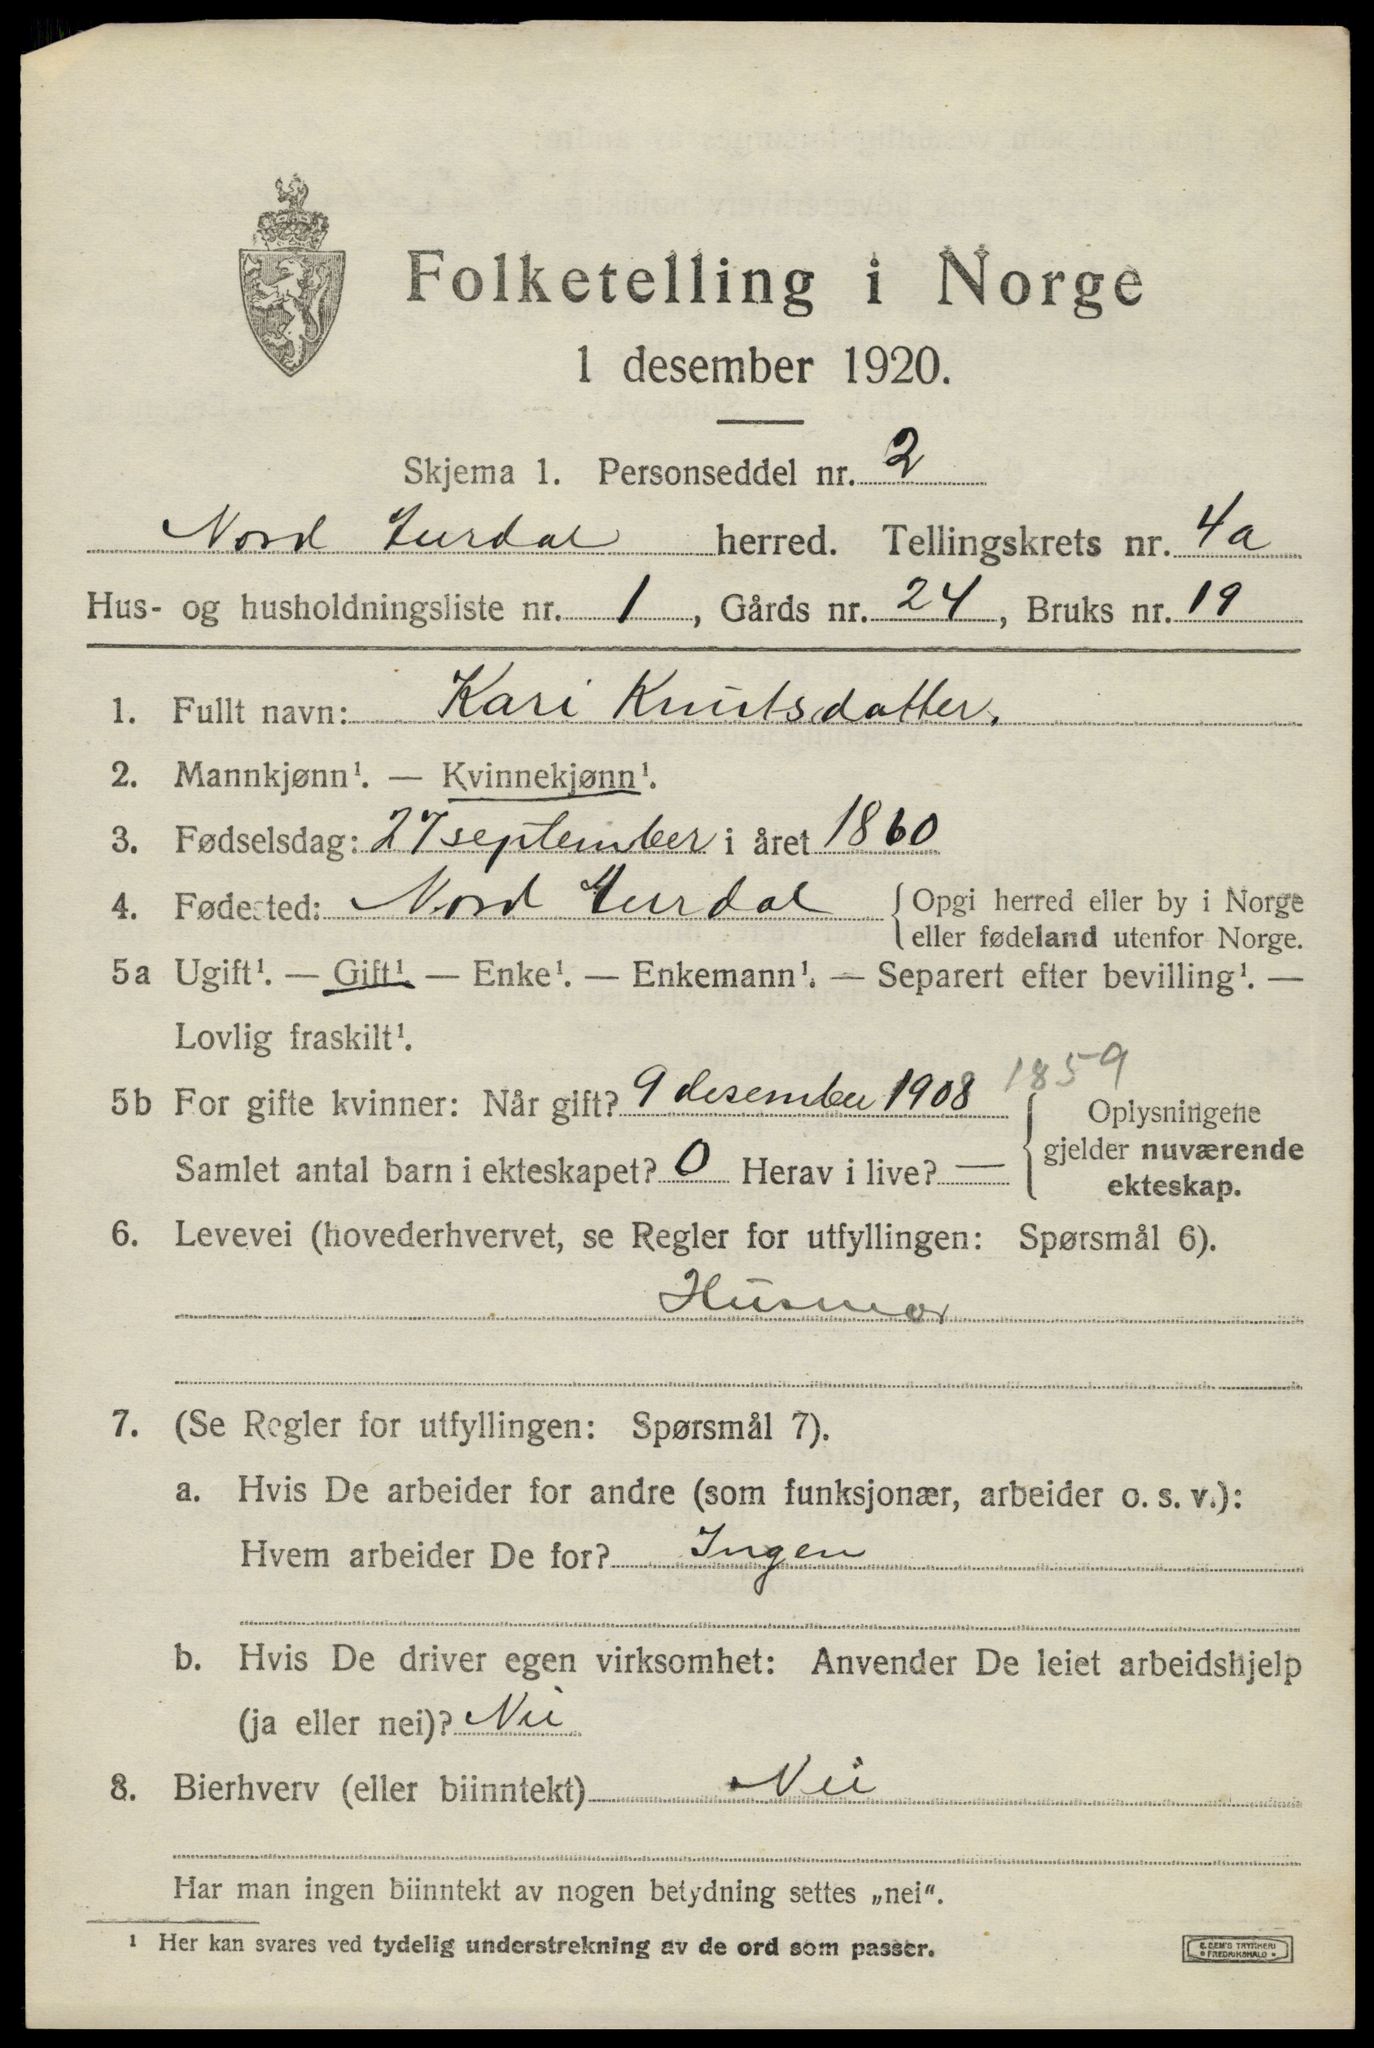 Folketelling i Norge
1 desember 1920.
Skjema 1. Personseddel nr. 2
Nord Aurdal herred. Tellingskrets nr. 4a
Hus- og husholdningsliste nr. 1, Gårds nr. 24, Bruks nr. 19
1. Fullt navn: Kari Knutsdatter.
2. Mannkjønn¹. — Kvinnekjønn¹.
3. Fødselsdag: 27 september i året 1860
4. Fødested: Nord Aurdal {Opgi herred eller by i Norge
eller fødeland utenfor Norge.
5a Ugift¹. — Gift¹. — Enke¹. — Enkemann¹. — Separert efter bevilling¹. —
Lovlig fraskilt¹.
1859
5b For gifte kvinner: Når gift? 9 desember 1908 { Oplysningene
gjelder nuværende
Samlet antal barn i ekteskapet? 0 Herav i live? —
ekteskap.
6. Levevei (hovederhvervet, se Regler for utfyllingen: Spørsmål 6).
Husmor
7. (Se Regler for utfyllingen: Spørsmål 7).
a. Hvis De arbeider for andre (som funksjonær, arbeider o. s. v.):
Hvem arbeider De for? Ingen
b. Hvis De driver egen virksomhet: Anvender De leiet arbeidshjelp
(ja eller nei)? Nei
8. Bierhverv (eller biinntekt) Nei
Har man ingen biinntekt av nogen betydning settes „nei“.
¹ Her kan svares ved tydelig understrekning av de ord som passer.
E. SEM'S TRYKKERI
FREDRIKSHALD